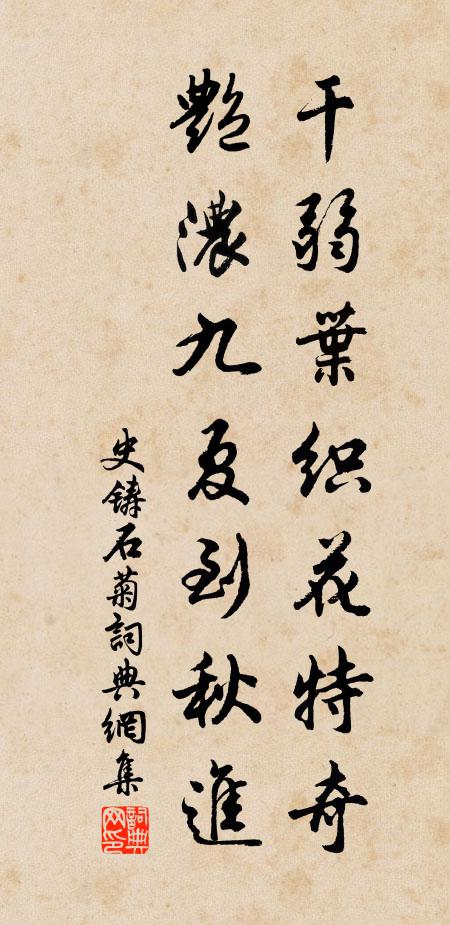 干弱葉织花特奇
艷濃九夏到秋進
史鑄石菊詞典網集
詞典网印